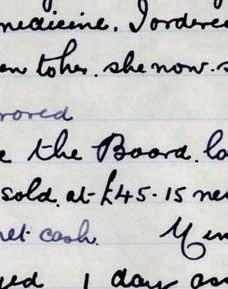 medicine. I ordered
to her. she now. s
the Board. la
sold. at £45.15 ne
net cash.
1 day